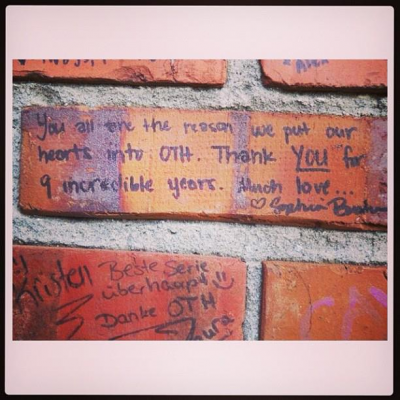 You all are the reason we put our
hearts into OTH. Thank YOU for
9 incredible years. Much love...
♡ Sophia Bush
Kristen
Beste Serie
überhaupt! :)
Danke OTH